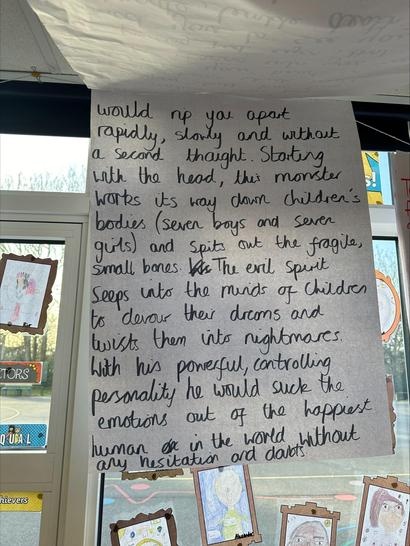 would rip you apart
rapidly, slowly and without
a second thought. Starting
with the head, this monster
works its way down children's
bodies (seven boys and seven
girls) and spits out the fragile,
small bones. The evil spirit
seeps into the minds of children
to devour their dreams and
twists them into nightmares.
With his powerful, controlling
personality he would suck the
emotions out of the happiest
human in the world without
any hesitation and doubts
CTORS
QUAL
hievers